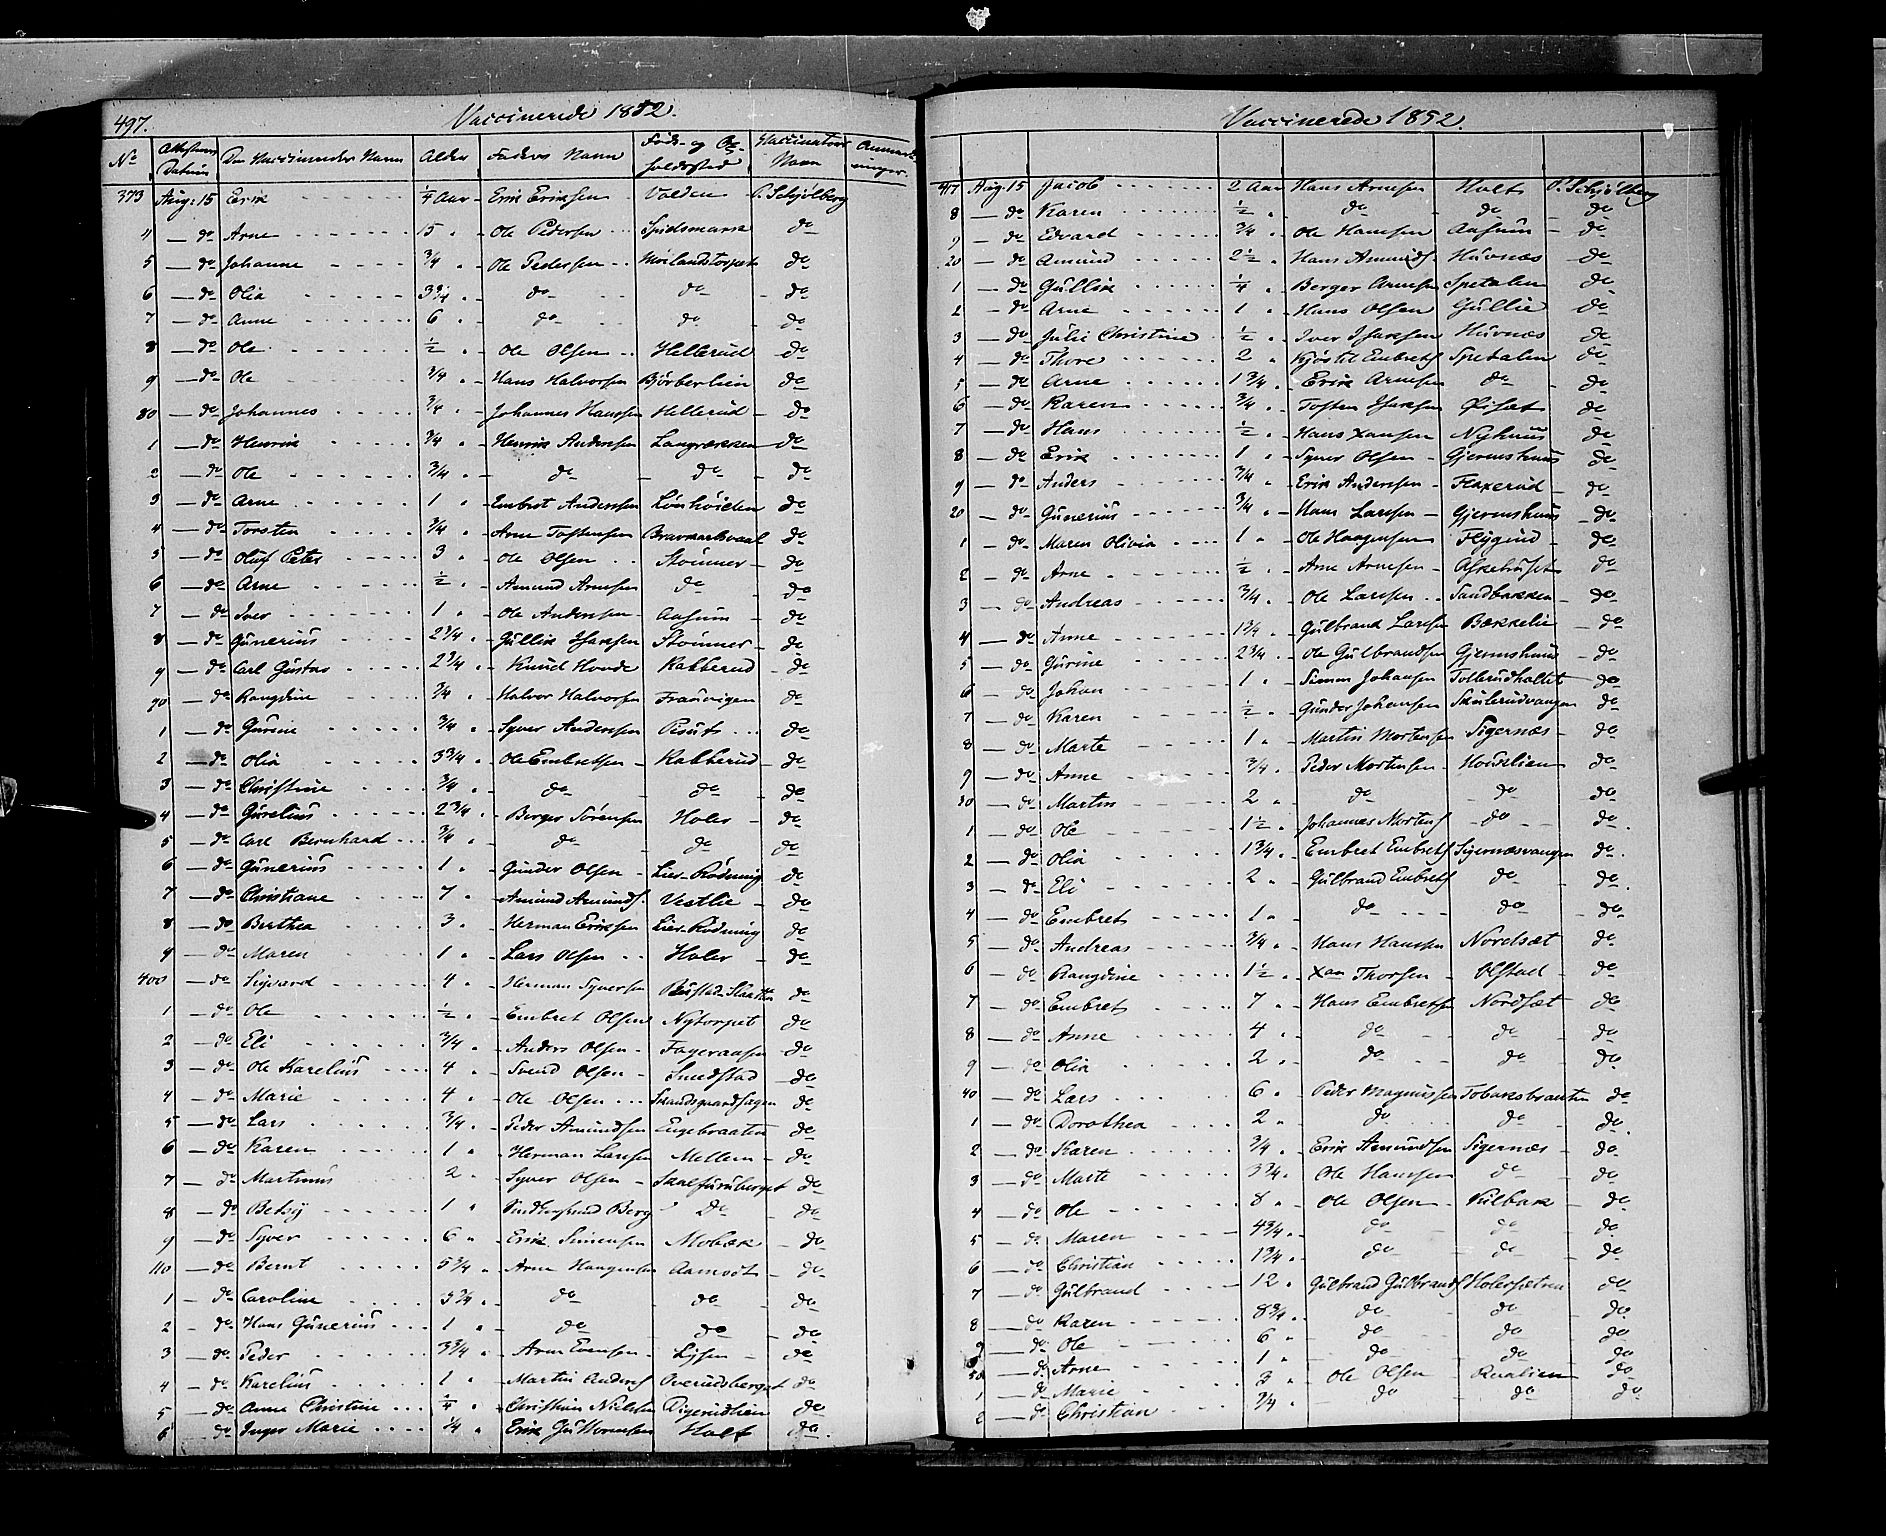 497.
Vaccinerede 1852.
No Attestens Datum Den Vaccineredes Navn Alder Faders Navn Føde- og Opholdssted Vaccinateurs Navn Anmærkninger
373 Aug: 15 Erik 1/4 Aar Erik Eriksen Valden P. Schjølberg
4 — do Arne 15 " Ole Pedersen do
5 — do Johanne 3/4 " Ole Pedersen Moilandstorpet do
6 — do Olia 3 3/4 " do do do
7 — do Anne 6 " do do do
8 — do Ole 1/2 " Ole Olsen Hellerud do
9 — do Ole 3/4 " Hans Halvorsen Bjørberlien do
80 — do Johannes 3/4 " Johannes Hanssen Hellerud do
1 — do Henrik 3/4 " Henrik Anderssen Langrækken do
2 — do Ole 3/4 " do do do
3 — do Arne 1 " Embret Anderssen Lønhøiden do
4 — do Torsten 3/4 " Arne Tostensen do
5 — do Oluf Peter 3 " Ole Olsen Stømner do
6 — do Arne 1/2 " Amund Arnesen do do
7 — do Iver 1 " Ole Anderssen Aasum do
8 — do Gunerius 2 3/4 " Gullik Isaksen Stømner do
9 — do Carl Gustav 2 3/4 " Knud Hovde Kabberud do
90 — do Rangdine 3/4 " Halvor Halvorsen Frauvigen do
1 — do Gurine 3/4 " Syver Anderssen do
2 — do Olia 5 3/4 " Ole Embretsen Kabberud do
3 — do Christine 3/4 " do do do
4 — do Gurelius 2 3/4 " Berger Sørensen Holer do
5 — do Carl Bernhard 3/4 " do do do
6 — do Gunerius 1 " Gunder Olsen Lier-Rødning do
7 — do Christiane 7 " Amund Amunds. Vestlie do
8 — do Berthea 3 " Herman Eriksen Lier-Rødning do
9 — do Maren 1 " Lars Olsen Holer do
400 — do Sigvard 4 " Herman Syversen do
1 — do Ole 1/2 " Embret Olsen Nytorpet do
2 — do Eli 3/4 " Anders Olsen Fageraasen do
3 — do Ole Karelius 4 " Svend Olsen Smedstad do
4 — do Marie 4 " Ole Olsen Strandsgaardsagen do
5 — do Lars 3/4 " Peder Amundsen Engebraaten do
6 — do Karen 1 " Herman Larsen Mellem do
7 — do Martinus 2 " Syver Olsen Skalfuruberget do
8 — do Betsy 1 " Berg Do do
9 — do Syver 6 " Erik Simensen Mobæk do
110 — do Bernt 5 3/4 " Arne Haagensen Aamodt do
1 — do Caroline 3 3/4 " do do do
2 — do Hans Gunerius 1 " do do do
3 — do Peder 3 3/4 " Arne Evensen Lysen do
4 — do Karelius 1 " Martin Anders. Overudsberget do
5 — do Anne Christine 1/4 " Christian Nielsen Digerudlien do
6 — do Inger Marie 1/4 " Erik Guttormsen Holt do
Vaccinerede 1852.
417 Aug. 15 Jacob 2 Aar Hans Arnesen Holt P. Schjølberg
8 — do Karen 1/2 " do do do
9 — do Edvard 3/4 " Ole Hansen Aasum do
20 — do Amund 2 1/2 " Hans Amunds. Huvnæs do
1 — do Gullik 1/4 " Berger Arnesen Spetalen do
2 — do Arne 1 " Hans Olsen Gullie do
3 — do Julie Christine 1/2 " Iver Isaksen Huvnæs do
4 — do Thore 2 " Kjøstil Embrets. Spetalen do
5 — do Arne 1 3/4 " Erik Arnesen do do
6 — do Karen 3/4 " Tosten Isaksen Øiset do
7 — do Hans 1/2 " Hans Xansen Nyhuus do
8 — do Erik 1 " Syver Olsen Gjermshuus do
9 — do Anders 3/4 " Erik Anderssen Flaxerud do
20 — do Gunerius 3/4 " Hans Larssen Gjermshuus do
1 — do Maren Olivia 1 " Ole Haagensen Flygind do
2 — do Arne 1/2 " Arne Arnesen do
3 — do Andreas 3/4 " Ole Larssen Sandbakken do
4 — do Anne 1 3/4 " Gulbrand Larssen Bækkelie do
5 — do Gurine 2 3/4 " Ole Gulbrandsen Gjermshuus do
6 — do Johan 1 " Simen Johansen Tollerudholtet do
7 — do Karen 1/2 " Gunder Johansen Skulerudvangen do
8 — do Marte 1 " Martin Mortensen Sigernæs do
9 — do Anne 3/4 " Peder Mortensen Houklien do
30 — do Martin 2 " do do do
1 — do Ole 1 1/2 " Johannes Mortens. do do
2 — do Olia 1 3/4 " Embret Embrets. Sigernæsvangen do
3 — do Eli 2 " Gulbrand Embrets. do do
4 — do Embret 1 " do do do
5 — do Andreas 3/4 " Hans Hanssen Nordsæt do
6 — do Rangdine 1 1/2 " Xan Thorsen Olstad do
7 — do Embret 7 " Hans Embretsen Nordsæt do
8 — do Anne 4 " do do do
9 — do Olia 2 " do do do
40 — do Lars 6 " Peder Magnussen Tobaksbraaten do
1 — do Dorothea 2 " do do do
2 — do Karen 3/4 " Erik Amundsen Sigernæs do
3 — do Marte 3 3/4 " Ole Hanssen do do
4 — do Ole 8 " Ole Olsen Kulbæk do
5 — do Maren 4 3/4 " do do do
6 — do Christian 1 3/4 " do do do
7 — do Gulbrand 12 " Gulbrand Gulbrands. Holersætren do
8 — do Karen 8 3/4 " do do do
9 — do Ole 6 " do do do
50 — do Arne 1 " do do do
1 — do Marie 3 " Ole Olsen do
2 — do Christian 3/4 " do do do